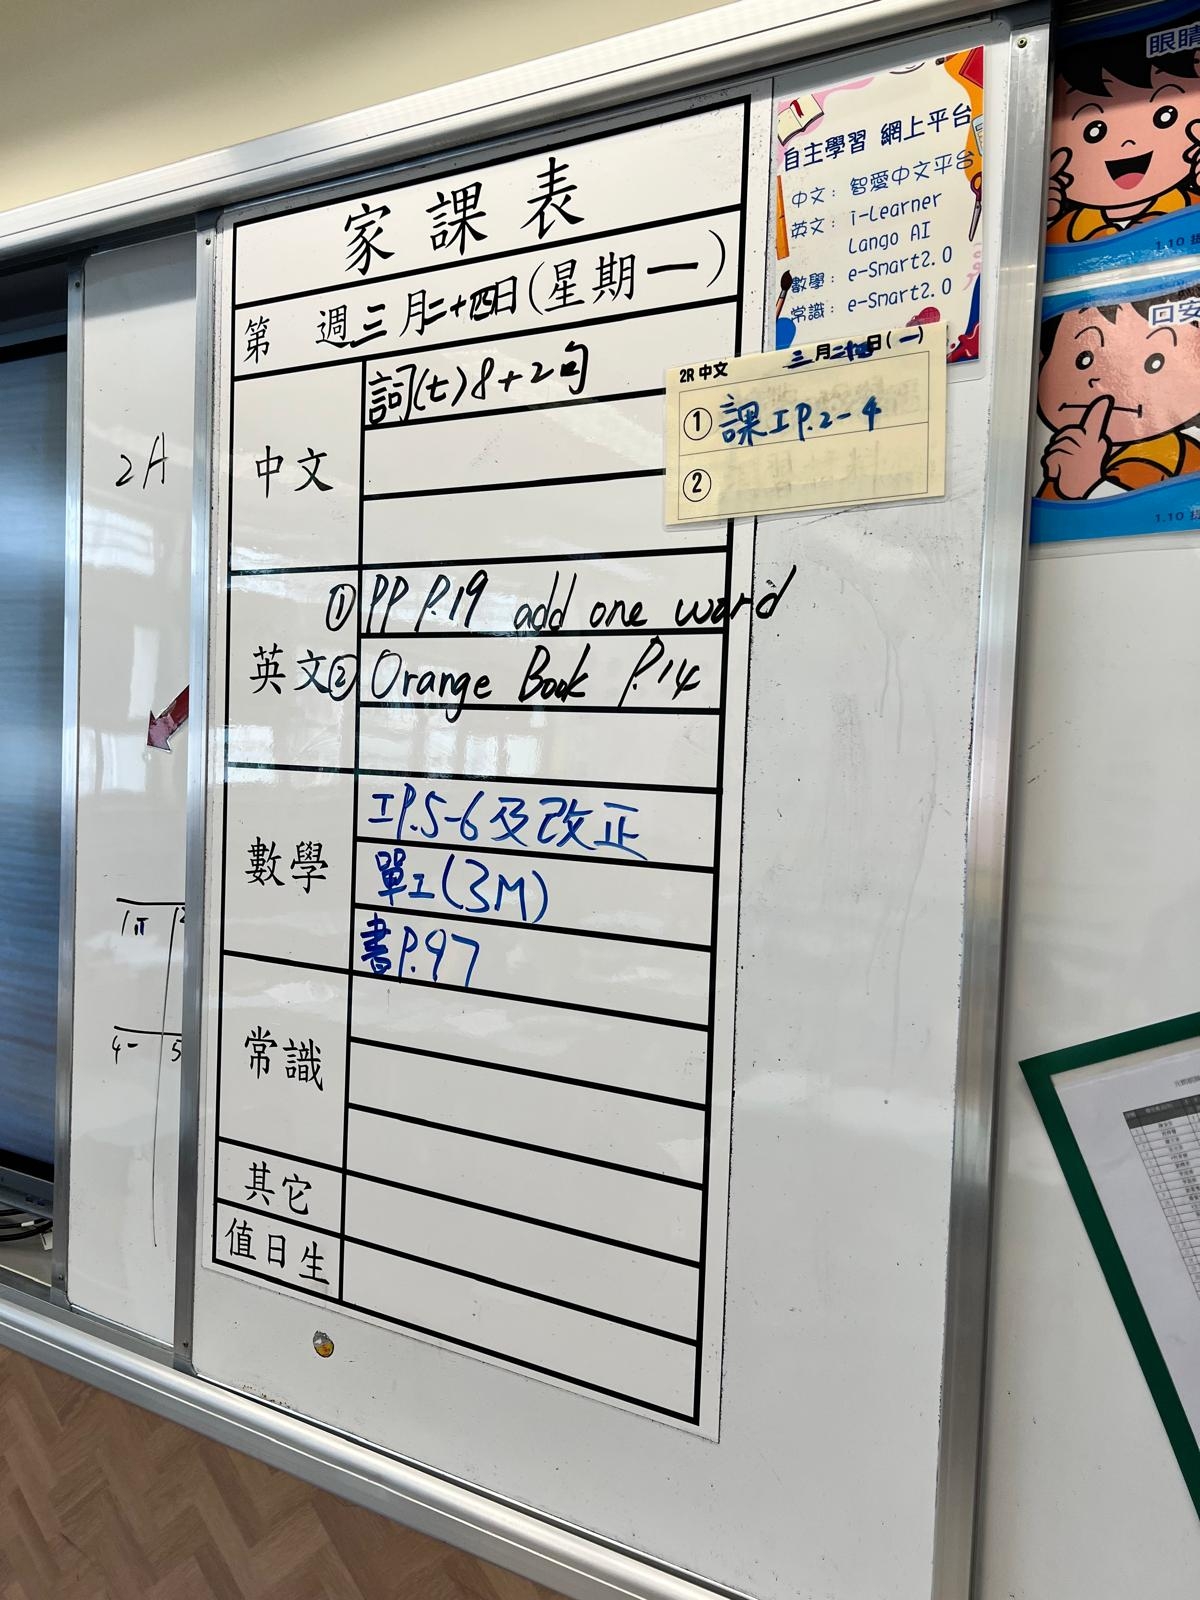 家課表
第 週三月二十四日(星期一)
中文
詞(七)8+2句
英文
① PP P.19 add one word
② Orange Book P.14
數學
工P.5-6及改正
單工(3M)
書P.97
常識
其它
值日生
自主學習 網上平台
中文: 智愛中文平台
英文: i-Learner
Lango AI
數學: e-Smart2.0
常識: e-Smart2.0
2R中文 三月二十四日(一)
① 課工P.2-4
②
2A
4- 5
眼睛
1.10
1.10